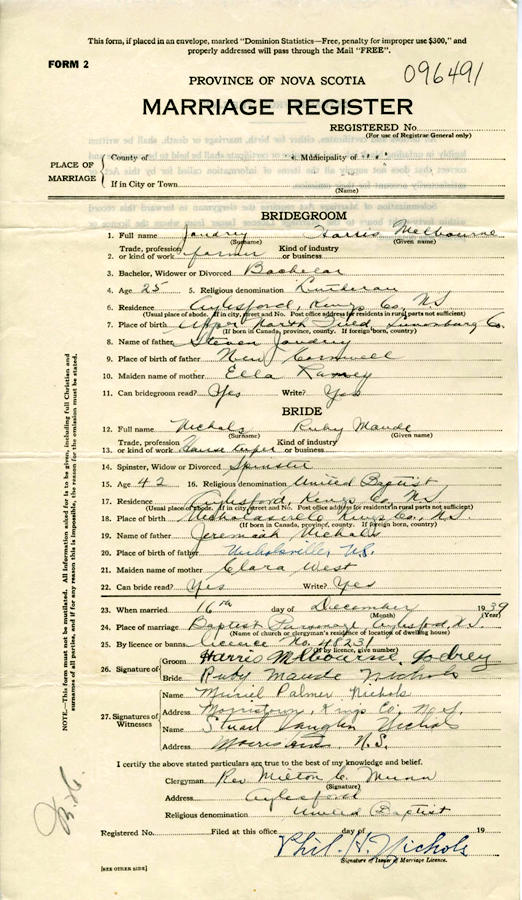 This form, if placed in an envelope, marked "Dominion Statistics—Free, penalty for improper use $300," and
properly addressed will pass through the Mail "FREE".
FORM 2
096491
PROVINCE OF NOVA SCOTIA
MARRIAGE REGISTER
REGISTERED No.
(For use of Registrar General only)
PLACE OF MARRIAGE
County of Municipality of
If in City or Town
(Name)
BRIDEGROOM
1. Full name Jaudrey Harris Melbourne
(Surname) (Given name)
Trade, profession Kind of industry
2. or kind of work farmer or business
3. Bachelor, Widower or Divorced Bachelor
4. Age 25 5. Religious denomination Lutheran
6. Residence Aylesford, Kings Co, NS
(Usual place of abode. If in city, street and No. Post office address for residents in rural parts not sufficient)
7. Place of birth Upper North Field Lunenburg Co.
(If born in Canada, province, county. If foreign born, country)
8. Name of father Steven Jaudrey
9. Place of birth of father New Cornwell
10. Maiden name of mother Ella Ramey
11. Can bridegroom read? Yes Write? Yes
BRIDE
12. Full name Nichols Ruby Maude
(Surname) (Given name)
Trade, profession Kind of industry
13. or kind of work House keeper or business
14. Spinster, Widow or Divorced Spinster
15. Age 42 16. Religious denomination United Baptist
17. Residence Aylesford, Kings Co, NS
(Usual place of abode. If in city, street and No. Post office address for residents in rural parts not sufficient)
18. Place of birth Nicholasville Kings Co, NS.
(If born in Canada, province, county. If foreign born, country)
19. Name of father Jeremiah Nichols
20. Place of birth of father Nicholsville, N.S.
21. Maiden name of mother Clara West
22. Can bride read? Yes Write? Yes
23. When married 16th day of December 1939
(Month) (Year)
24. Place of marriage Baptist Parsonage Aylesford, NS.
(Name of church or clergyman's residence of location of dwelling house)
25. By licence or banns Licence No.
(If by licence, give number)
26. Signature of
Groom Harris Melbourne Jodrey
Bride Ruby Maude Nichols
27. Signatures of Witnesses
Name Muriel Palmer Nichols
Address Morristown, Kings Co. N.S.
Name Stuart Vaughn Nichols
Address Morristown N.S.
I certify the above stated particulars are true to the best of my knowledge and belief.
Clergyman Rev Milton C. Munn
(Signature)
Address Aylesford
Religious denomination United Baptist
Registered No. Filed at this office day of 19
Phil. H. Nichols
Signature of Issuer of Marriage Licence.
[SEE OTHER SIDE]
NOTE.—This form must not be mutilated. All information asked for is to be given, including full Christian and
surnames of all parties, and if for any reason this is impossible, the reason for the omission must be stated.